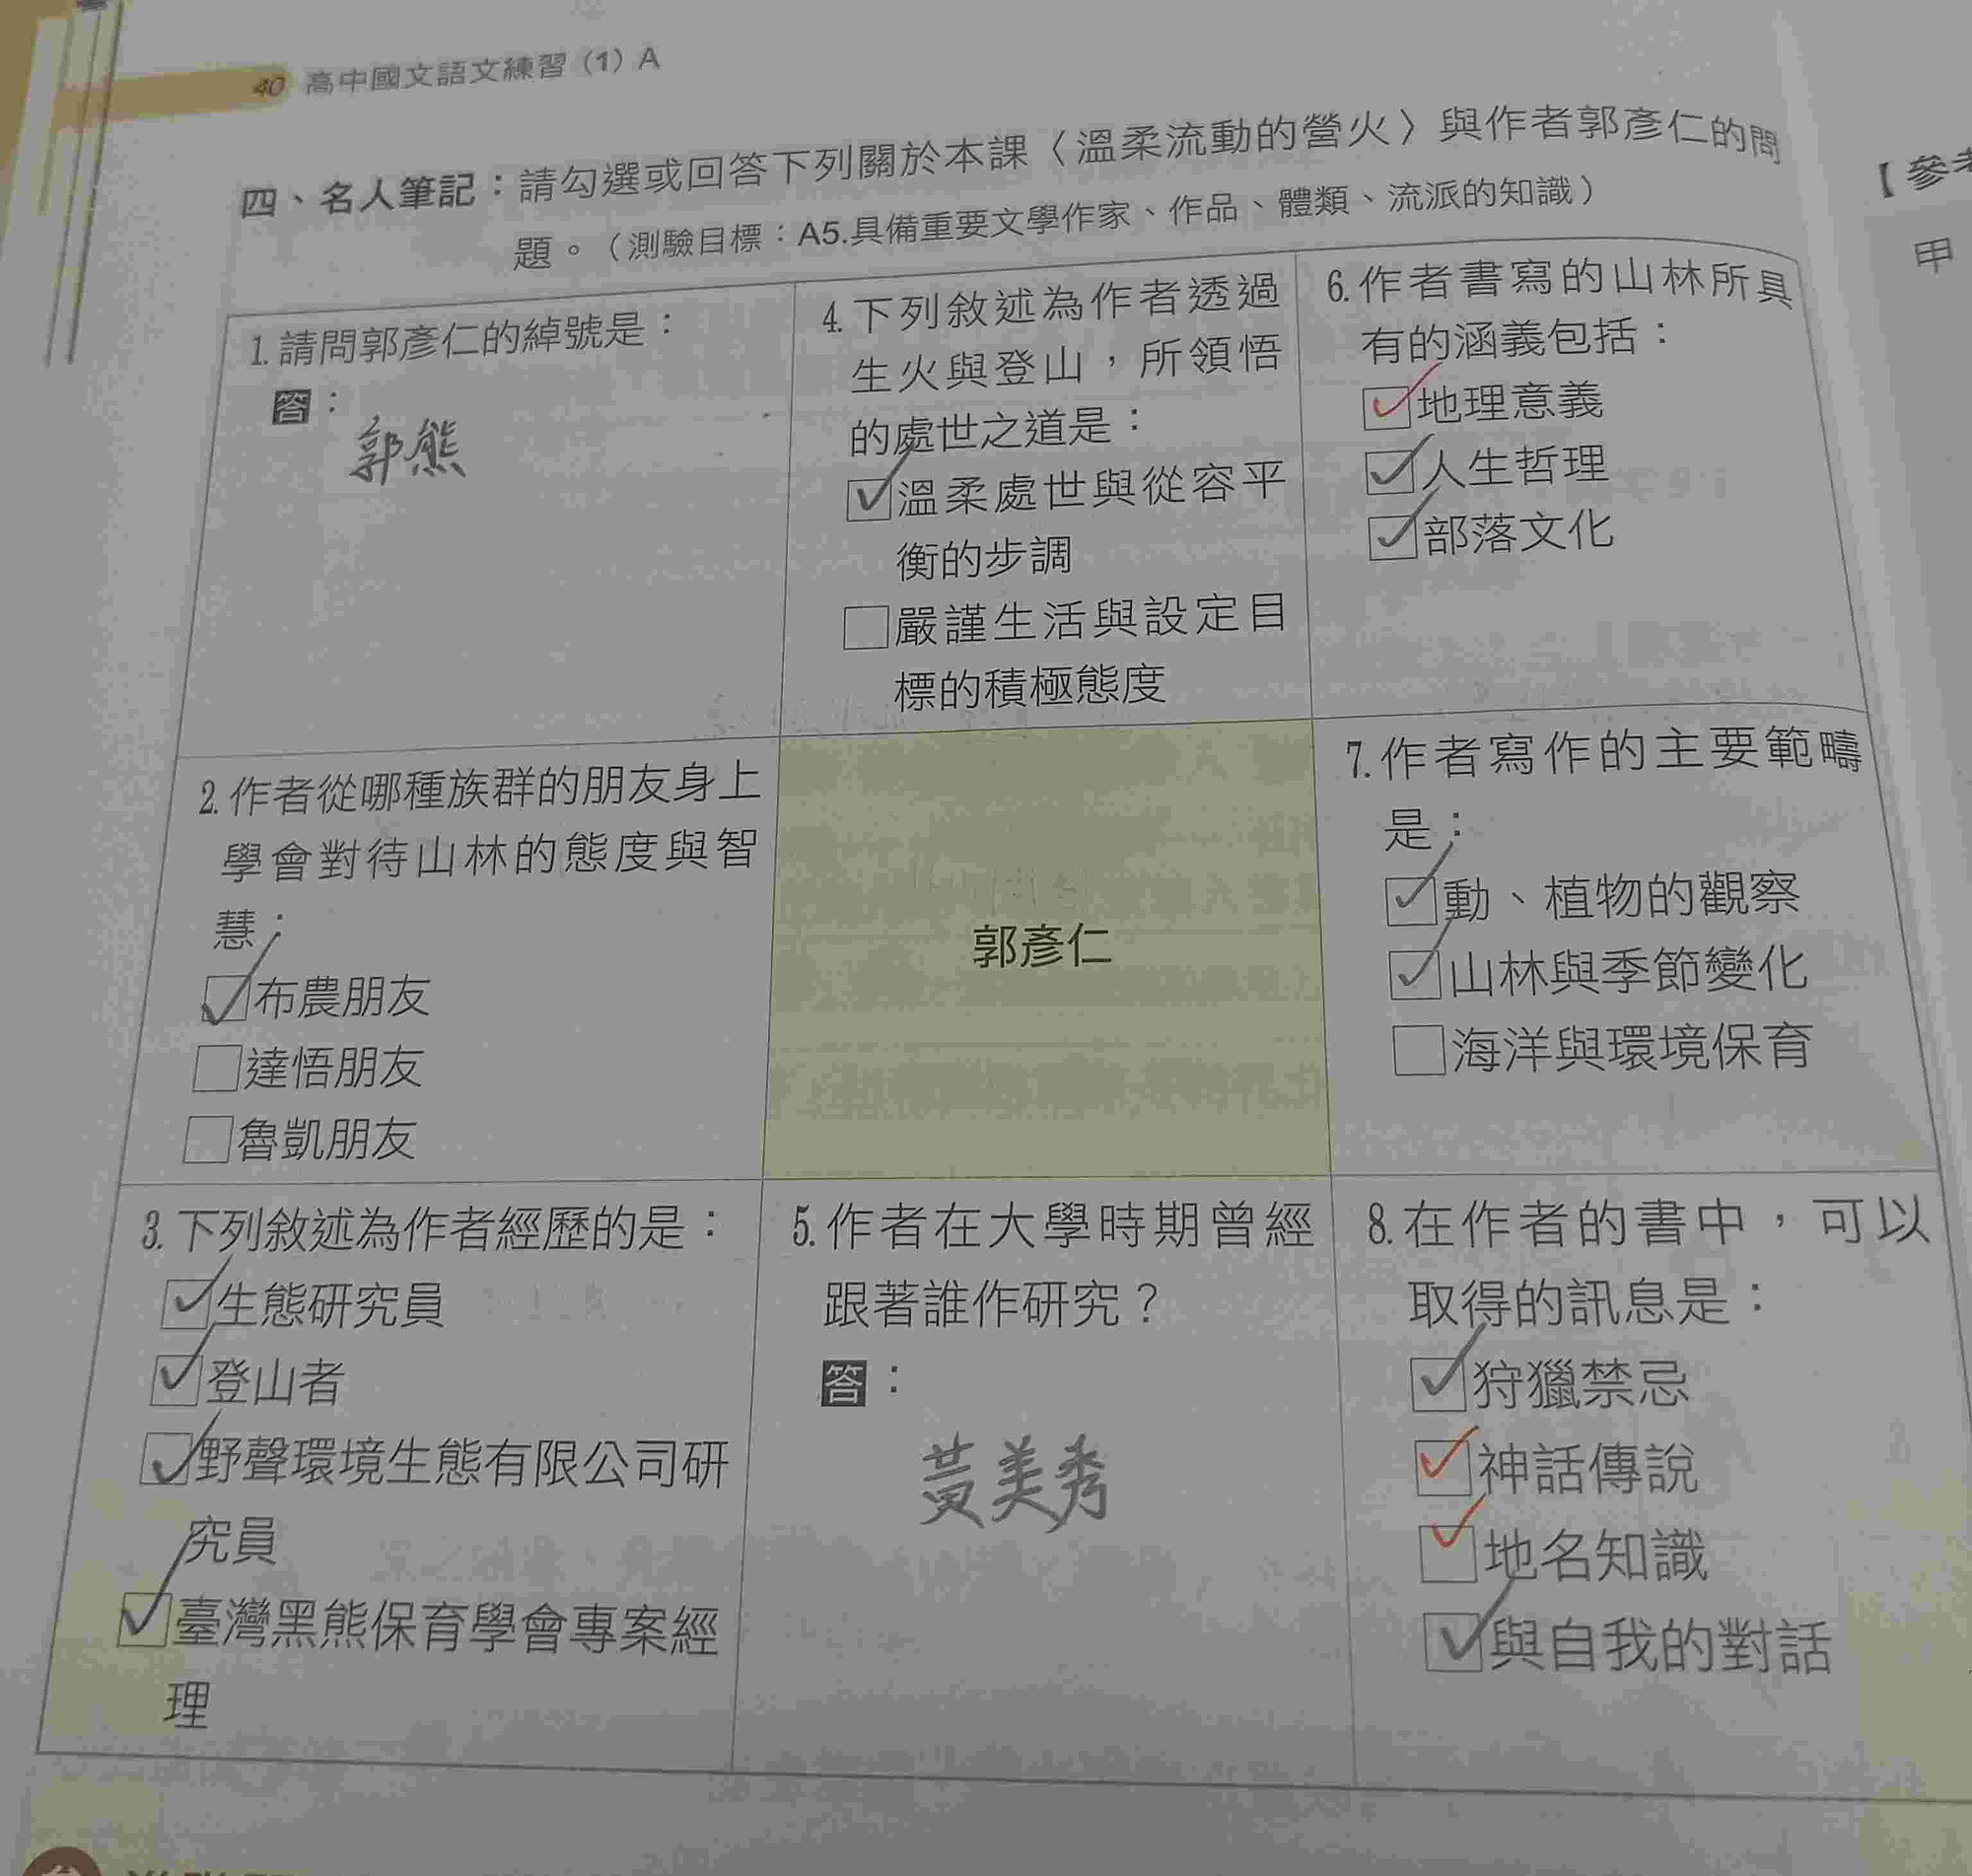 40 高中國文語文練習（1）A
四、名人筆記：請勾選或回答下列關於本課〈溫柔流動的營火〉與作者郭彥仁的問
題。（測驗目標：A5.具備重要文學作家、作品、體類、流派的知識）
1.請問郭彥仁的綽號是：
答：
郭熊
2.作者從哪種族群的朋友身上
學會對待山林的態度與智
慧：
☑布農朋友
□達悟朋友
□魯凱朋友
3.下列敘述為作者經歷的是：
☑生態研究員
☑登山者
☑野聲環境生態有限公司研
究員
☑臺灣黑熊保育學會專案經
理
4.下列敘述為作者透過
生火與登山，所領悟
的處世之道是：
☑溫柔處世與從容平
衡的步調
□嚴謹生活與設定目
標的積極態度
郭彥仁
5.作者在大學時期曾經
跟著誰作研究？
答：
黃美秀
6.作者書寫的山林所具
有的涵義包括：
☑地理意義
☑人生哲理
☑部落文化
7.作者寫作的主要範疇
是：
☑動、植物的觀察
☑山林與季節變化
□海洋與環境保育
8.在作者的書中，可以
取得的訊息是：
☑狩獵禁忌
☑神話傳說
☑地名知識
☑與自我的對話
【參考
甲